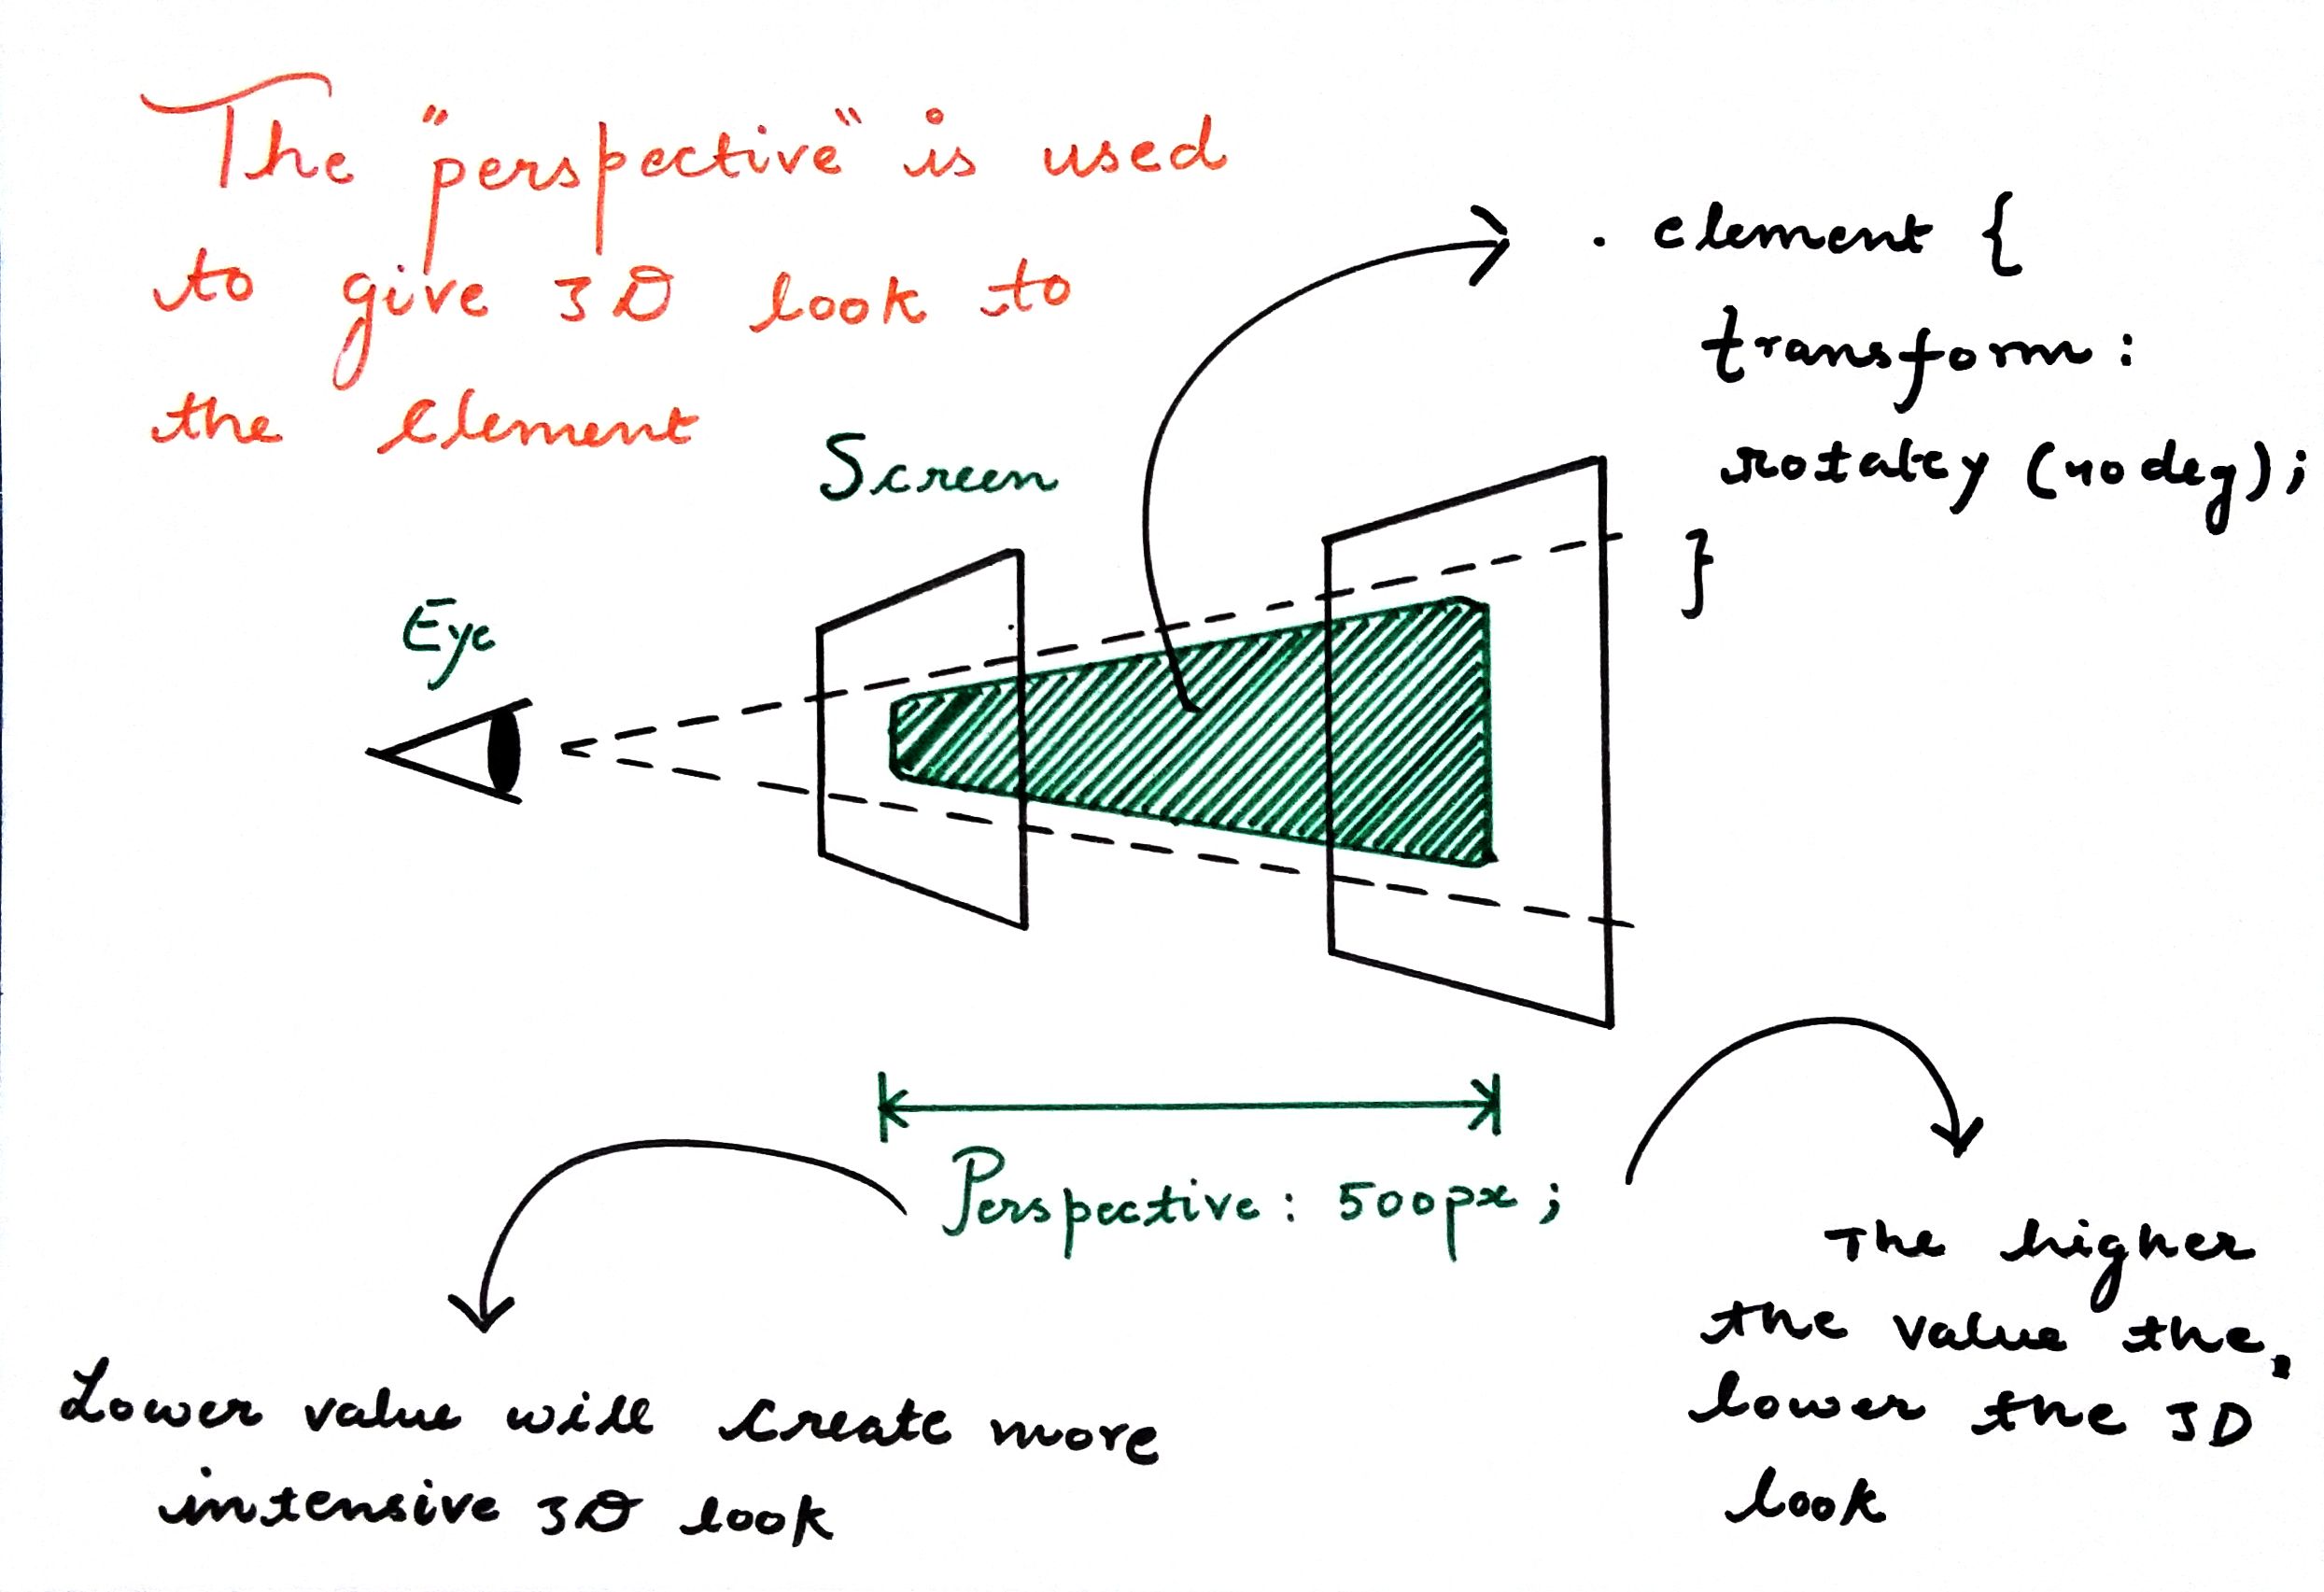 The "perspective" is used
to give 3D look to
the element
. element {
transform:
rotatey (40deg);
}
Screen
Eye
Perspective: 500px;
Lower value will create more
intensive 3D look
The higher
the value the,
lower the 3D
look